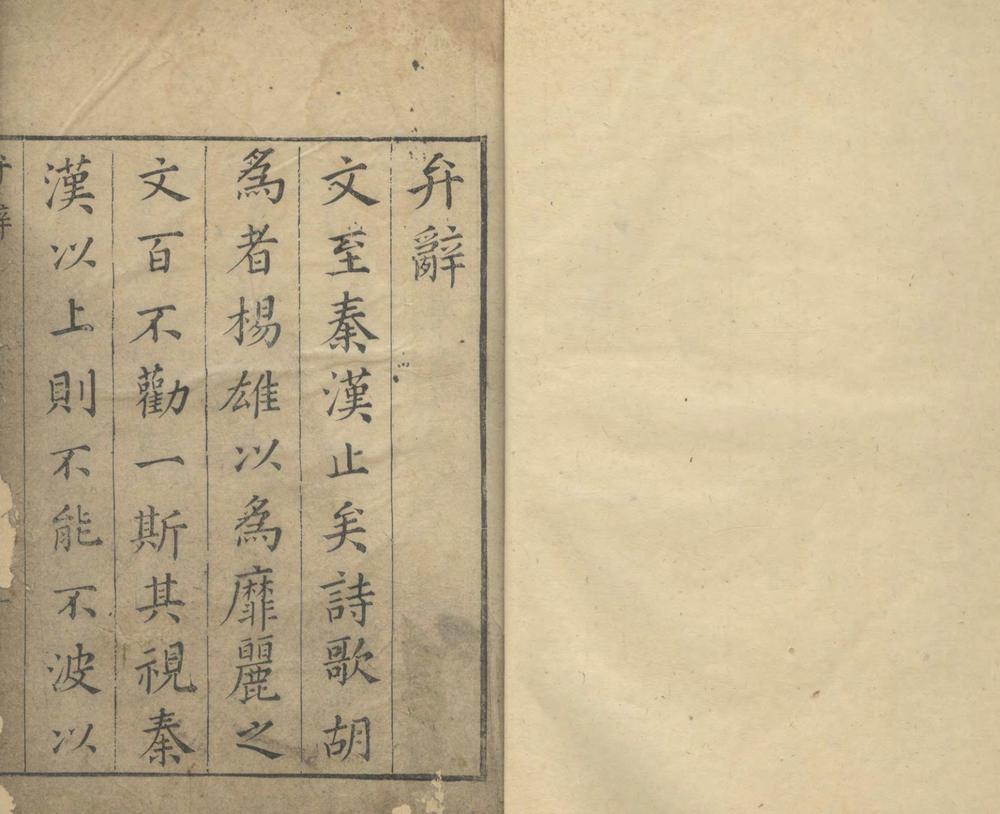 弁辭
文至秦漢止矣詩歌胡
爲者楊雄以爲靡麗之
文百不勸一斯其視秦
漢以上則不能不波以